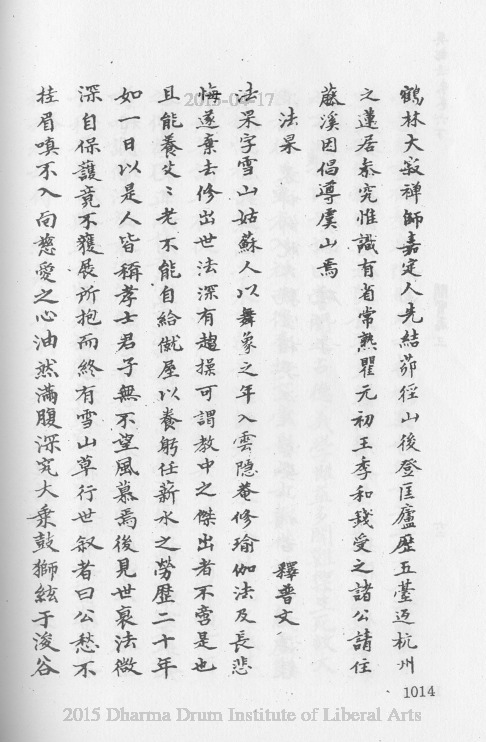 鶴林大寂禅師嘉定人先結茆徑山後登匡廬歷五臺迈杭州
之蓮居叅究惟識有省常熟瞿元初王季和錢受之諸公請住
藤溪因倡導虞山焉
法杲 釋普文
法杲字雪山姑蘇人以舞象之年入雲隱菴修瑜伽法及長悲
悔遂棄去修出世法深有趨操可謂教中之傑出者不啻是也
且能養父〻老不能自給僦屋以養躬任薪水之勞歷二十年
如一日以是人皆稱孝士君子無不望風慕焉後見世衰法微
深自保護竟不獲展所抱而終有雪山草行世叙者曰公愁不
挂眉嗔不入向慈愛之心油然滿腹深究大乘鼓獅絃于浚谷
1014
2015-04-17
2015 Dharma Drum Institute of Liberal Arts